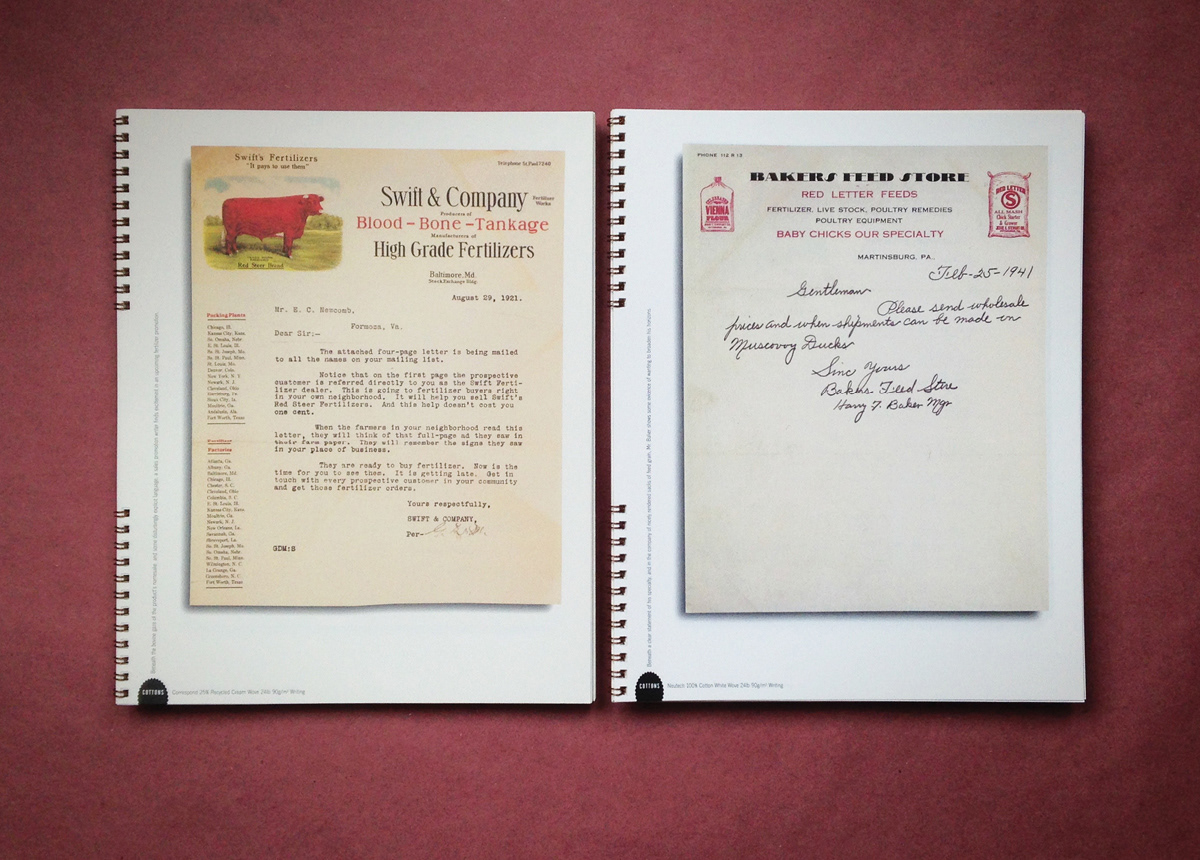 Swift's Fertilizers
"It pays to use them"
Telephone St. Paul 7240
Swift & Company
Fertilizer
Works
Producers of
Blood-Bone-Tankage
Manufacturers of
High Grade Fertilizers
Red Steer Brand
Baltimore, Md.
Stock Exchange Bldg.
August 29, 1921.
Mr. E. C. Newcomb,
Formosa, Va.
Dear Sir:-
The attached four-page letter is being mailed
to all the names on your mailing list.
Notice that on the first page the prospective
customer is referred directly to you as the Swift Ferti-
lizer dealer. This is going to fertilizer buyers right
in your own neighborhood. It will help you sell Swift's
Red Steer Fertilizers. And this help doesn't cost you
one cent.
When the farmers in your neighborhood read this
letter, they will think of that full-page ad they saw in
their farm paper. They will remember the signs they saw
in your place of business.
They are ready to buy fertilizer. Now is the
time for you to see them. It is getting late. Get in
touch with every prospective customer in your community
and get those fertilizer orders.
Yours respectfully,
SWIFT & COMPANY,
Per-
GDM:S
Packing Plants
Chicago, Ill.
Kansas City, Kans.
So. Omaha, Nebr.
E. St. Louis, Ill.
So. St. Joseph, Mo.
So. St. Paul, Minn.
St. Louis, Mo.
Denver, Colo.
New York, N. Y.
Newark, N. J.
Cleveland, Ohio
Harrisburg, Pa.
Sioux City, Ia.
Moultrie, Ga.
Andalusia, Ala.
Fort Worth, Texas
Fertilizer
Factories
Atlanta, Ga.
Albany, Ga.
Baltimore, Md.
Chicago, Ill.
Chester, S. C.
Cleveland, Ohio
Columbia, S. C.
E. St. Louis, Ill.
Kansas City, Kans.
Moultrie, Ga.
Newark, N. J.
New Orleans, La.
Savannah, Ga.
Shreveport, La.
So. St. Joseph, Mo.
So. Omaha, Nebr.
So. St. Paul, Minn.
Wilmington, N. C.
La Grange, Ga.
Greensboro, N. C.
Fort Worth, Texas
COTTONS
Correspond 25% Recycled Cream Wove 24lb 90g/m² Writing
PHONE 112 R 13
BAKERS FEED STORE
RED LETTER FEEDS
FERTILIZER, LIVE STOCK, POULTRY REMEDIES
POULTRY EQUIPMENT
BABY CHICKS OUR SPECIALTY
MARTINSBURG, PA.
VIENNA
FLOUR
RED LETTER
S
ALL MASH
Chick Starter
& Grower
Feb-25-1941
Gentleman
Please send wholesale
prices and when shipments can be made in
Muscovoy Ducks
Sinc Yours
Bakers Feed Store
Harry F. Baker Mgr
COTTONS
100% Cotton White Wove 24lb 90g/m² Writing